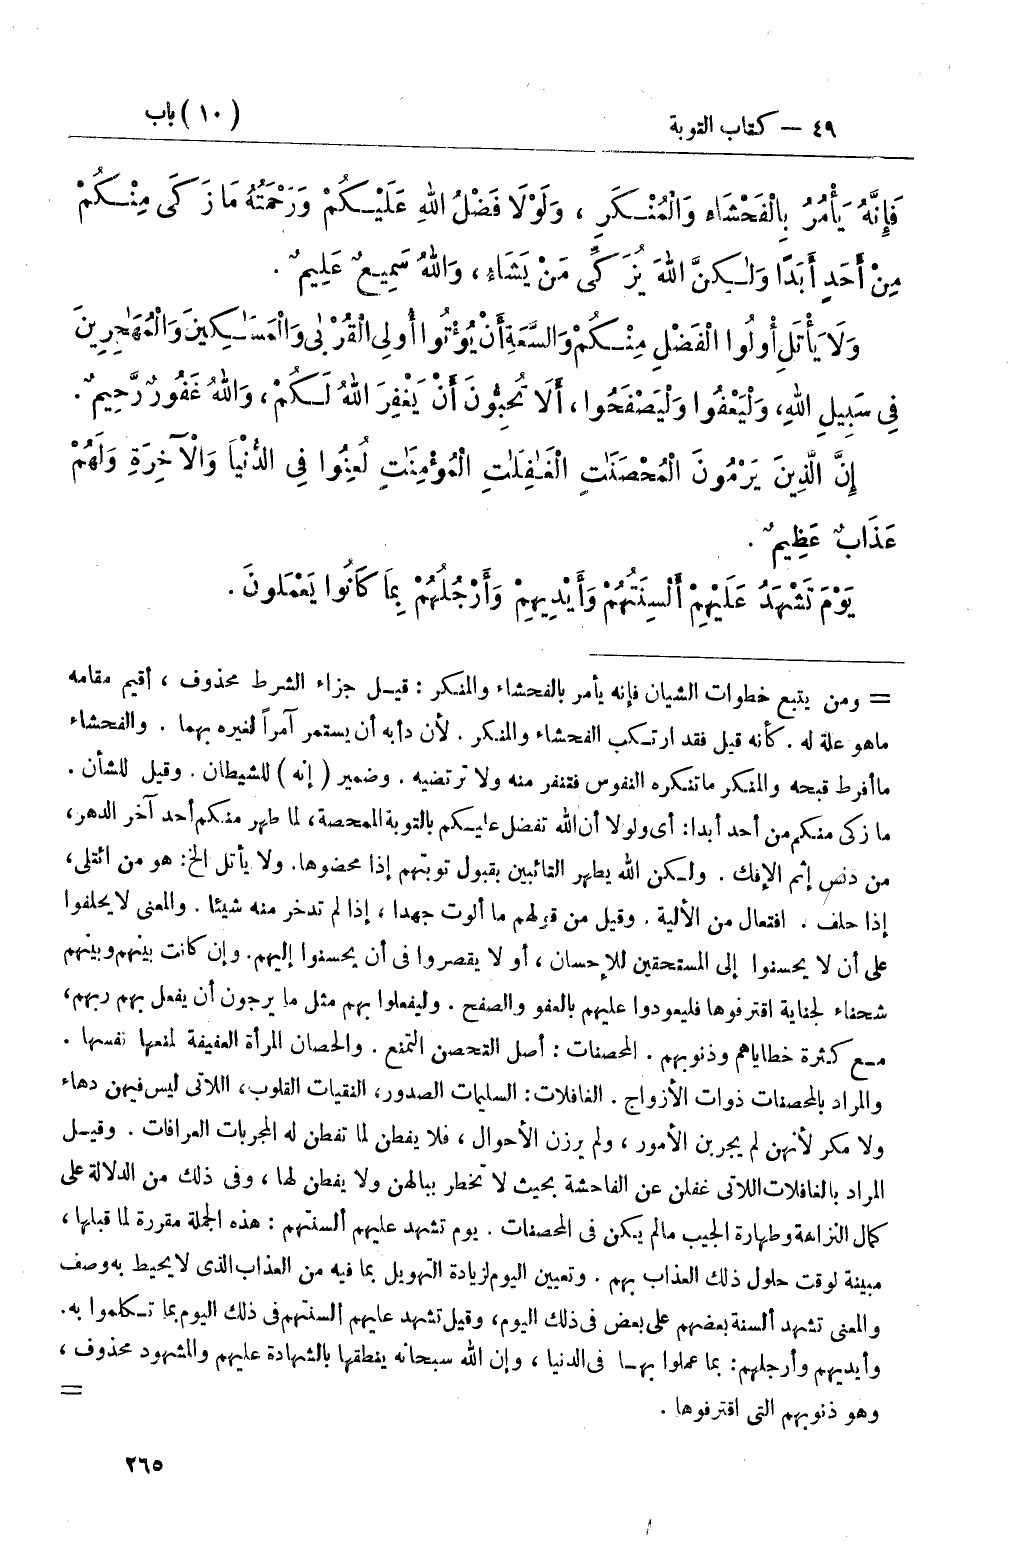 ٤٩ – كتاب التوبة
(١٠) باب
فَإِنَّهُ يَأْمُرُ بِالْفَحْشَاءِ وَالْمُنْكَرِ ، وَلَوْلَا فَضْلُ اللهِ عَلَيْكُمْ وَرَحْمَتُهُ مَا زَكَى مِنْكُمْ
مِنْ أَحَدٍ أَبَدًا وَلَـٰكِنَّ اللهَ يُزَكِّى مَنْ يَشَاءُ ، وَاللهُ سَمِيعٌ عَلِيمٌ .
وَلَا يَأْتَلِ أُولُوا الْفَضْلِ مِنْكُمْ وَالسَّعَةِ أَنْ يُؤْتُوا أُولِى الْقُرْبَى وَالْمَسَـٰكِينَ وَالْمُهَـٰجِرِينَ
فِى سَبِيلِ اللهِ، وَلْيَعْفُوا وَلْيَصْفَحُوا ، أَلَا تُحِبُّونَ أَنْ يَغْفِرَ اللهُ لَكُمْ ، وَاللهُ غَفُورٌ رَّحِيمٌ .
إِنَّ الَّذِينَ يَرْمُونَ الْمُحْصَنَـٰتِ الْغَـٰفِلَـٰتِ الْمُؤْمِنَـٰتِ لُعِنُوا فِى الدُّنْيَا وَالْآخِرَةِ وَلَهُمْ
عَذَابٌ عَظِيمٌ .
يَوْمَ تَشْهَدُ عَلَيْهِمْ أَلْسِنَتُهُمْ وَأَيْدِيهِمْ وَأَرْجُلُهُمْ بِمَا كَانُوا يَعْمَلُونَ .
= ومن يتبع خطوات الشيان فإنه يأمر بالفحشاء والمنكر : قيل جزاء الشرط محذوف ، أقيم مقامه
ماهو علة له . كأنه قيل فقد ارتكب الفحشاء والمنكر . لأن دأبه أن يستمر آمراً لغيره بهما . والفحشاء
ماأفرط قبحه والمنكر ماتنكره النفوس فتنفر منه ولا ترتضيه . وضمير ( إنه ) للشيطان . وقيل للشأن .
ما زكى منكم من أحد أبدا : أى ولولا أن الله تفضل عليكم بالتوبة الممحصة، لما طهر منكم أحد آخر الدهر،
من دنس إثم الإفك . ولكن الله يطهر التائبين بقبول توبتهم إذا محضوها. ولا يأتل الخ: هو من ائتلى،
إذا حلف . افتعال من الألية . وقيل من قولهم ما ألوت جهدا ، إذا لم تدخر منه شيئا . والمعنى لايحلفوا
على أن لا يحسنوا إلى المستحقين للإحسان ، أو لا يقصروا فى أن يحسنوا إليهم. وإن كانت بينهم وبينهم
شحناء لجناية اقترفوها فليعودوا عليهم بالعفو والصفح . وليفعلوا بهم مثل ما يرجون أن يفعل بهم ربهم،
مع كثرة خطاياهم وذنوبهم . المحصنات : أصل التحصن التمنع . والحصان المرأة العفيفة لمنعها نفسها .
والمراد بالمحصنات ذوات الأزواج . الغافلات: السليمات الصدور، النقيات القلوب، اللاتى ليس فيهن دهاء
ولا مكر لأنهن لم يجربن الأمور ، ولم يرزن الأحوال ، فلا يفطن لما تفطن له المجربات العرافات . وقيل
المراد بالغافلات اللاتى غفلن عن الفاحشة بحيث لا تخطر ببالهن ولا يفطن لها ، وفى ذلك من الدلالة على
كمال النزاهة وطهارة الجيب مالم يكن فى المحصنات . يوم تشهد عليهم ألسنتهم : هذه الجملة مقررة لما قبلها ،
مبينة لوقت حلول ذلك العذاب بهم . وتعيين اليوم لزيادة التهويل بما فيه من العذاب الذى لا يحيط به وصف
والمعنى تشهد ألسنة بعضهم على بعض فى ذلك اليوم، وقيل تشهد عليهم ألسنتهم فى ذلك اليوم بما تكلموا به.
وأيديهم وأرجلهم: بما عملوا بها فى الدنيا ، وإن الله سبحانه ينطقها بالشهادة عليهم والمشهود محذوف ،
وهو ذنوبهم التى اقترفوها .
=
٢٦٥